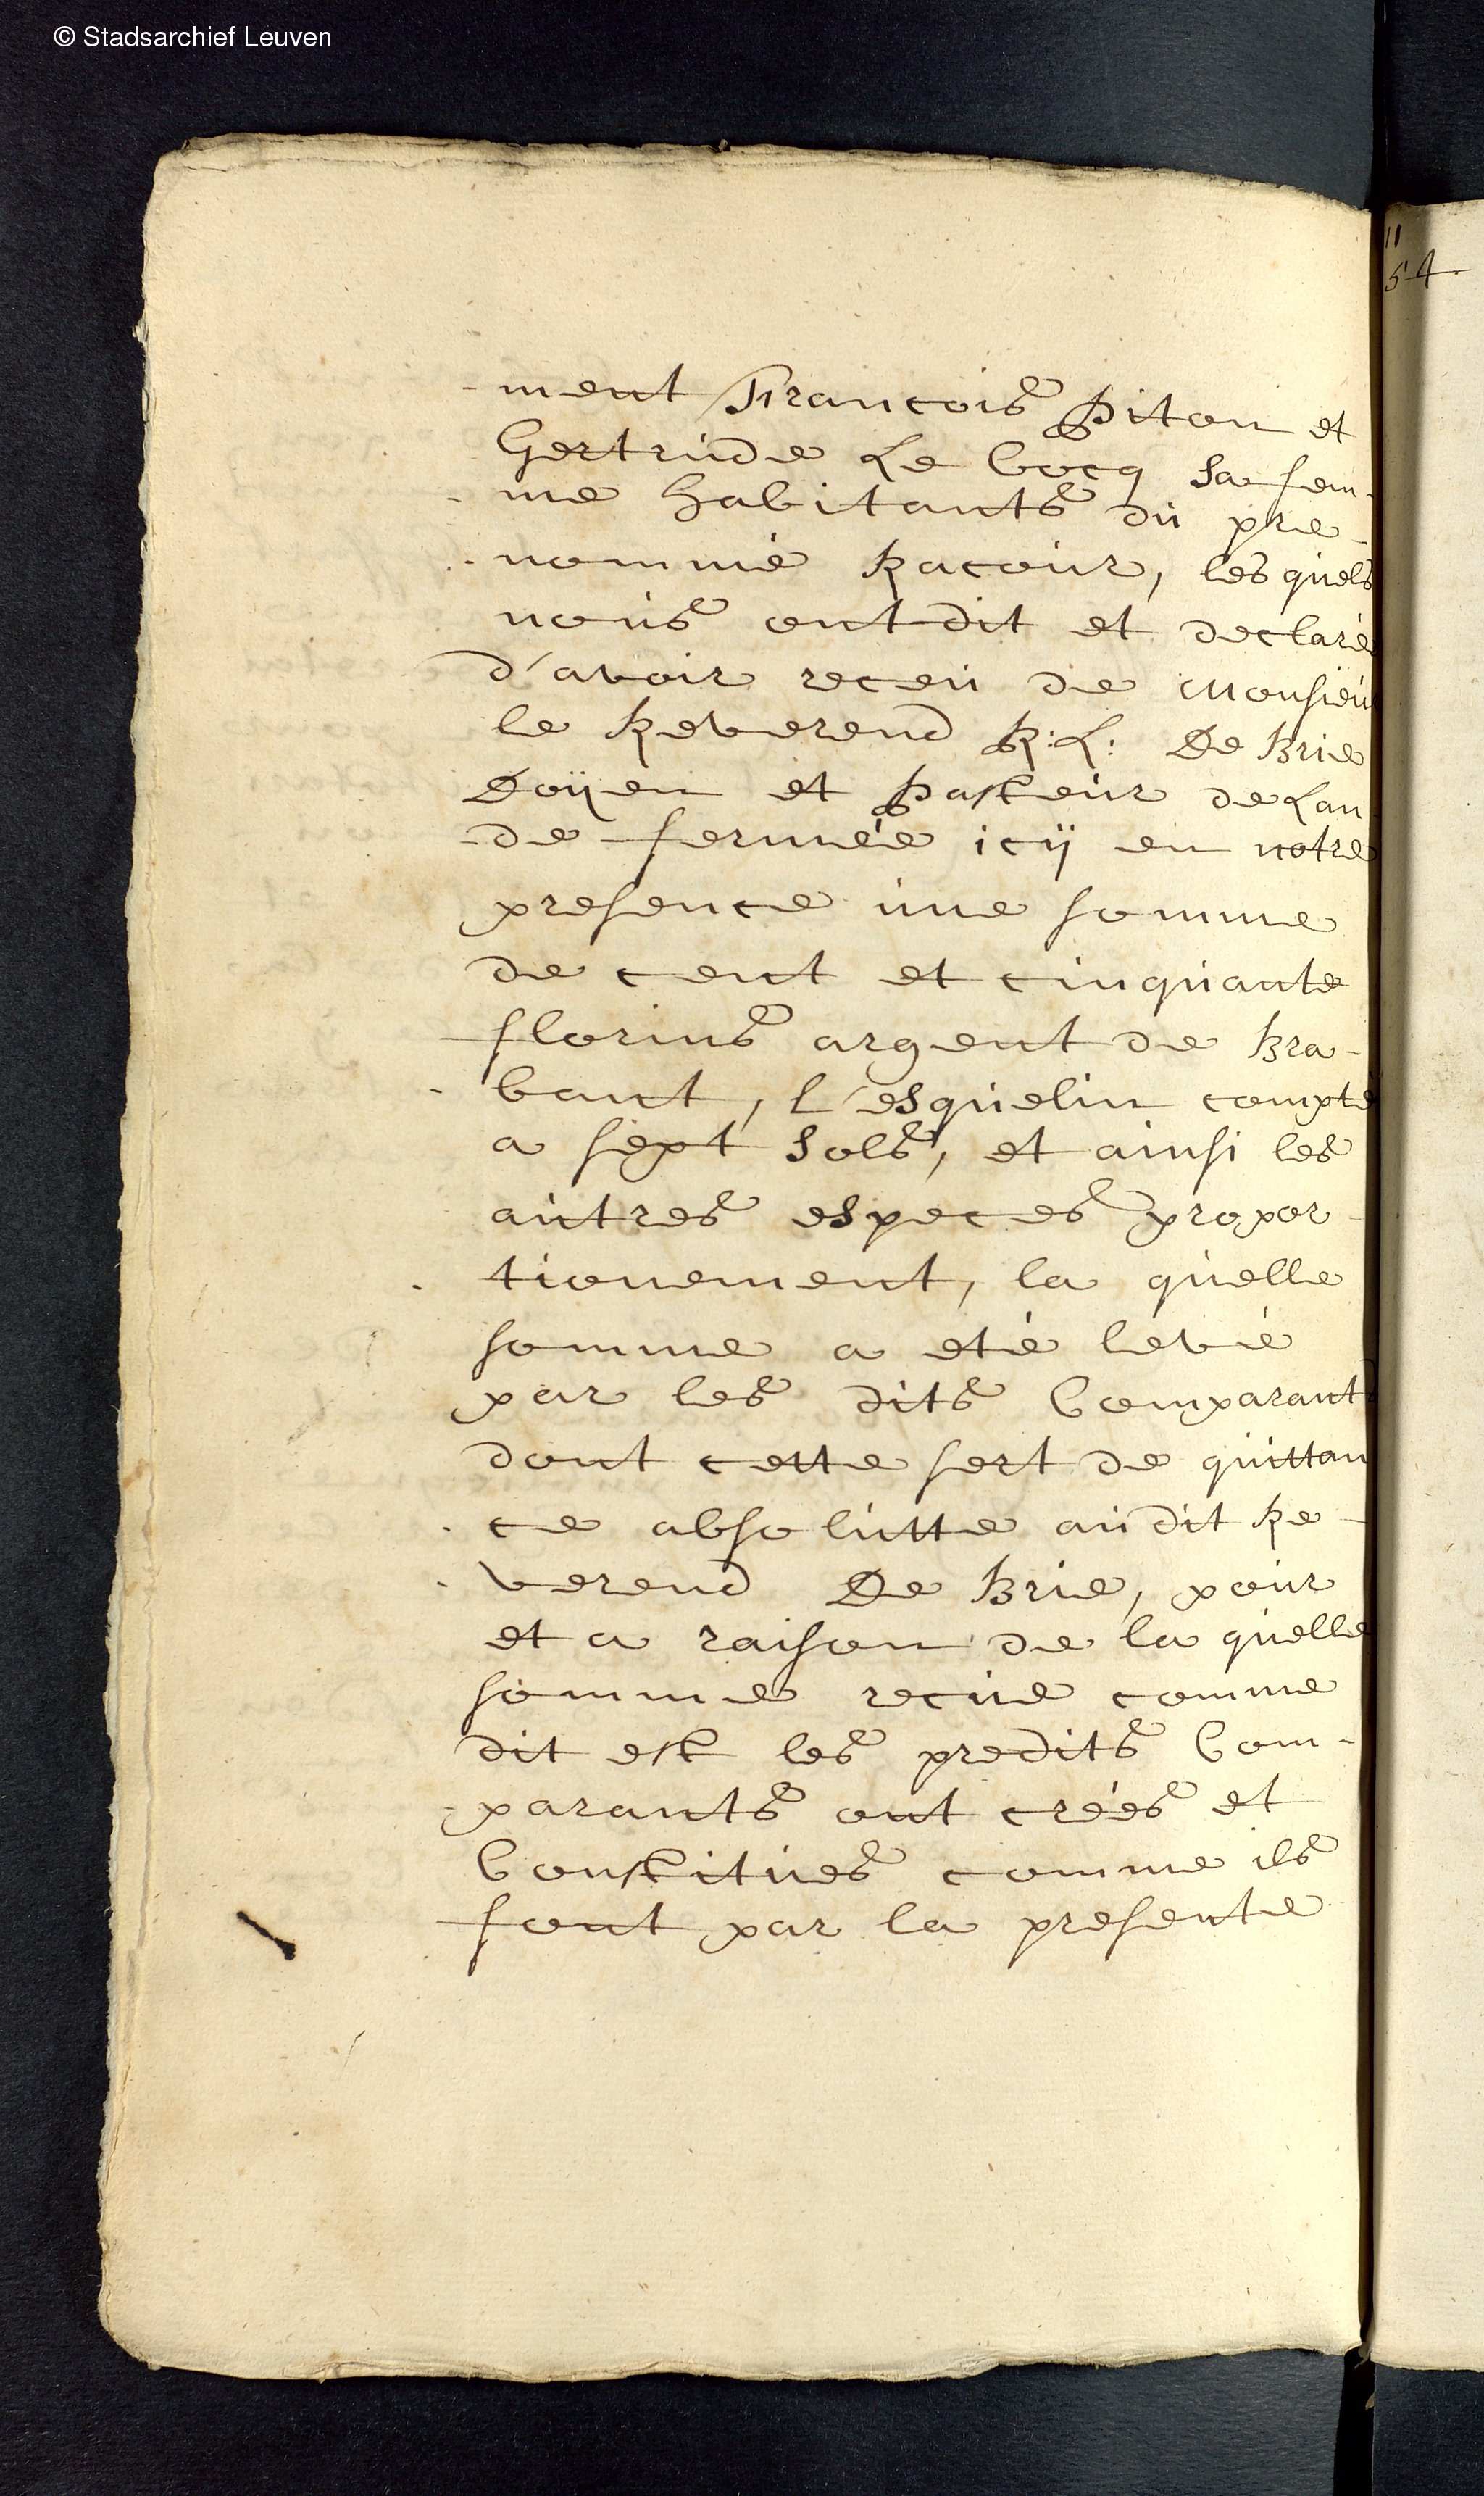 © Stadsarchief Leuven
11
54
-ment Francois Piton et
Gertrude Le Cocq sa fem-
-me habitants du pre-
-nommé Racour, les quels
nous ont dit et declaré
d'avoir receu de Monsieur
le Reverend R: L: De Brie
Doÿen et Pasteur de Lan
-de fermée icÿ en notre
presence une somme
de cent et cinquante
florins argent de Bra-
-bant, l'esquelin compté
a sept sols, et ainsi les
autres especes propor-
-tionement, la quelle
somme a eté levé
par les dits Comparants
dont cette sert de quittan
-ce absolutte audit Re-
-verend De Brie, pour
et a raison de la quelle
somme recue comme
dit est les predits Com-
-parants ont créés et
Constitués comme ils
font par la presente